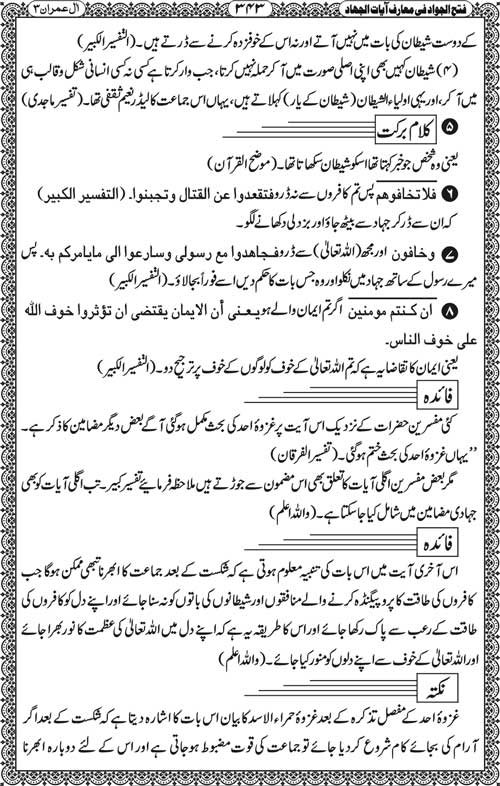 فتح الجواد فی معارف آیات الجهاد ۳۴۳ آل عمران ۳
کے دوست شیطان کی بات میں نہیں آتے اور نہ اس کے خوفزدہ کرنے سے ڈرتے ہیں۔ (التفسیر الکبیر)
(۴) شیطان کہیں بھی اپنی اصلی صورت میں آ کر حملہ نہیں کرتا، جب وار کرتا ہے کسی نہ کسی انسانی شکل و قالب ہی
میں آ کر، اور یہی اولیاء الشیطان (شیطان کے یار) کہلاتے ہیں، یہاں اس جماعت کا لیڈر نعیم ثقفی تھا۔ (تفسیر ماجدی)
۵ کلام برکت
یعنی وہ شخص جو خبر کہتا تھا اسکو شیطان سکھاتا تھا۔ (موضح القرآن)
۶ فلا تخافوهم پس تم کافروں سے نہ ڈرو فتقعدوا عن القتال وتجبنوا۔ (التفسیر الکبیر)
کہ ان سے ڈر کر جہاد سے بیٹھ جاؤ اور بزدلی دکھانے لگو۔
۷ وخافون اور مجھ (اللہ تعالیٰ) سے ڈرو فجاهدوا مع رسولی وسارعوا الی مایامرکم به۔ پس
میرے رسول کے ساتھ جہاد میں نکلو اور وہ جس بات کا حکم دیں اسے فوراً بجا لاؤ۔ (التفسیر الکبیر)
۸ ان کنتم مومنین اگر تم ایمان والے ہو یعنی أن الایمان یقتضی ان تؤثروا خوف اللہ
علی خوف الناس۔
یعنی ایمان کا تقاضا یہ ہے کہ تم اللہ تعالیٰ کے خوف کو لوگوں کے خوف پر ترجیح دو۔ (التفسیر الکبیر)
فائدہ
کئی مفسرین حضرات کے نزدیک اس آیت پر غزوۂ احد کی بحث مکمل ہو گئی آگے بعض دیگر مضامین کا ذکر ہے۔
”یہاں غزوۂ احد کی بحث ختم ہو گئی۔ (تفسیر الفرقان)
مگر بعض مفسرین اگلی آیات کا تعلق بھی اس مضمون سے جوڑتے ہیں ملاحظہ فرمائیے تفسیر کبیر۔ تب اگلی آیات کو بھی
جہادی مضامین میں شامل کیا جا سکتا ہے۔ (واللہ اعلم)
فائدہ
اس آخری آیت میں اس بات کی تنبیہ معلوم ہوتی ہے کہ شکست کے بعد جماعت کا ابھرنا تبھی ممکن ہو گا جب
کافروں کی طاقت کا پروپیگنڈہ کرنے والے منافقوں اور شیطانوں کی باتوں کو نہ سنا جائے اور اپنے دل کو کافروں کی
طاقت کے رعب سے پاک رکھا جائے اور اس کا طریقہ یہ ہے کہ اپنے دل میں اللہ تعالیٰ کی عظمت کا نور بھرا جائے
اور اللہ تعالیٰ کے خوف سے اپنے دلوں کو منور کیا جائے۔ (واللہ اعلم)
نکتہ
غزوۂ احد کے مفصل تذکرہ کے بعد غزوۂ حمراء الاسد کا بیان اس بات کا اشارہ دیتا ہے کہ شکست کے بعد اگر
آرام کی بجائے کام شروع کر دیا جائے تو جماعت کی قوت مضبوط ہو جاتی ہے اور اس کے لئے دوبارہ ابھرنا